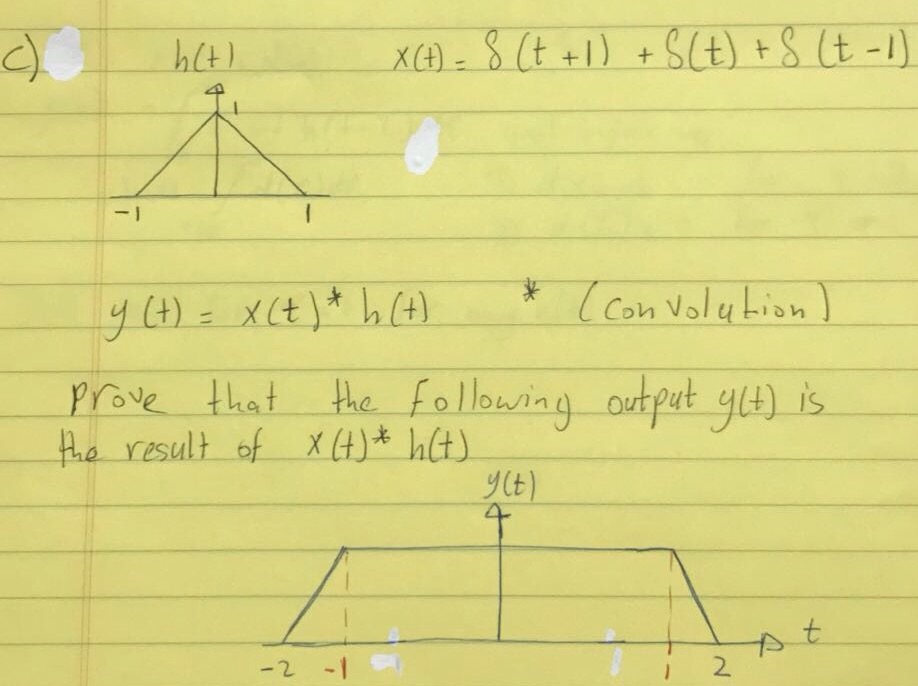 c) h(t) x(t) = δ(t+1) + δ(t) + δ(t-1)
1
-1 1
y(t) = x(t) * h(t) * (convolution)
prove that the following output y(t) is
the result of x(t) * h(t)
y(t)
t
-2 -1 1 2